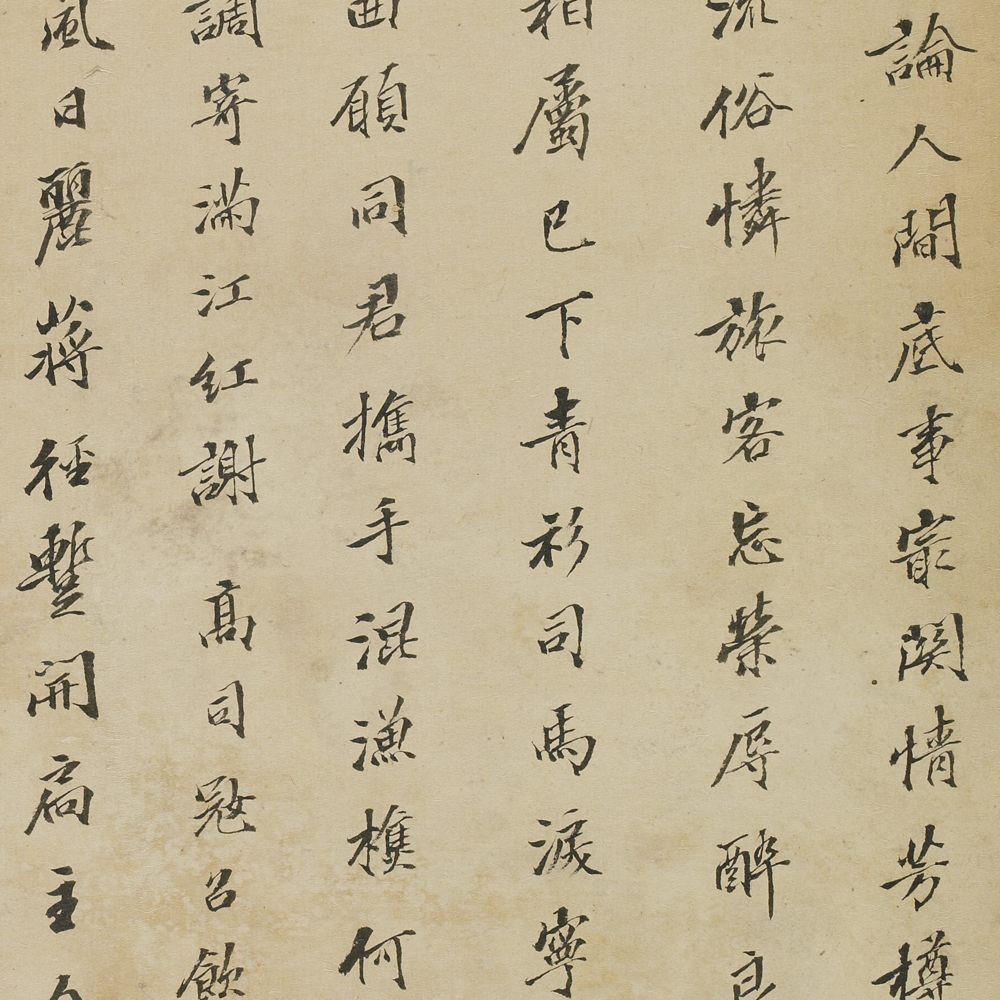 論人間底事寂關情芳樽
流俗憐旅客忘榮辱醉良
相屬已下青衫司馬淚寧
曲願同君攜手混漁樵何
調寄滿江紅謝 高司寇召飲
風日麗蔣徑暫開扃主人